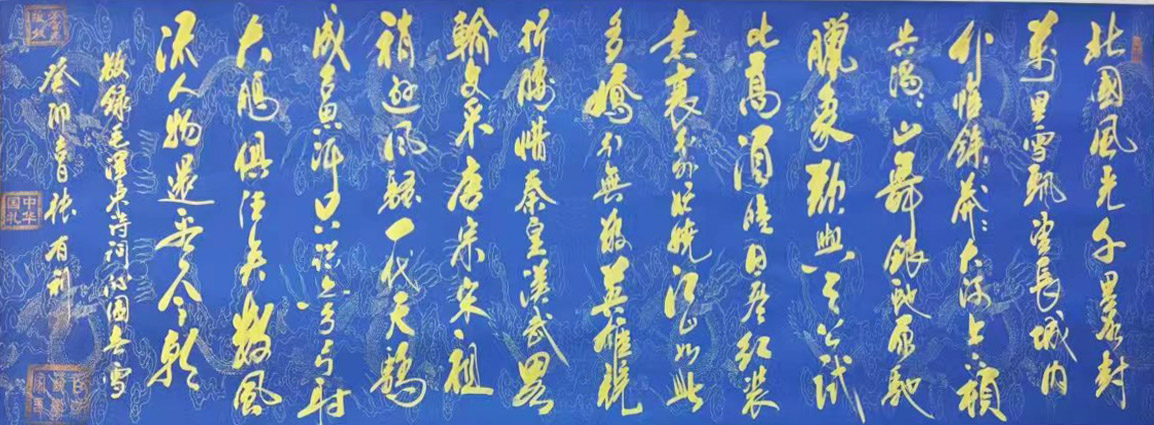 北國風光千里冰封
萬里雪飄望長城内
外惟餘莽〻大河上下頓
失滔〻山舞銀蛇原馳
蠟象欲與天公試
比高須晴日看紅裝
素裹分外妖嬈江山如此
多嬌引無數英雄競
折腰惜秦皇漢武略
輸文采唐宗宋祖
稍遜風騷一代天驕
成吉思汗只識彎弓射
大鵰俱往矣數風
流人物還看今朝
敬錄毛澤東詩詞沁園春雪
癸卯春日張有利
中华国礼